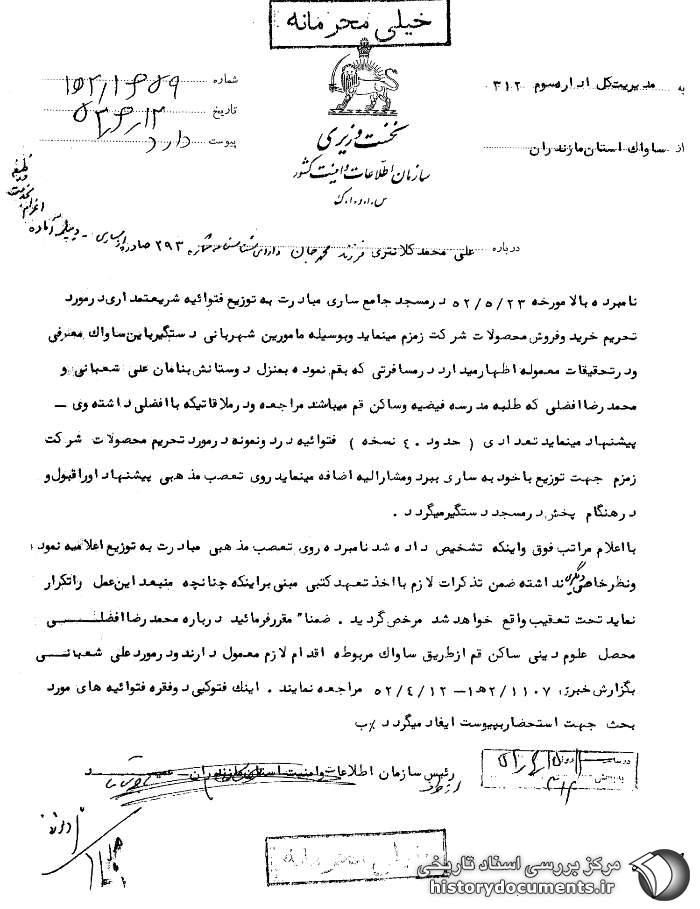 خیلی محرمانه
به مدیریت کل اداره سوم ۳۱۲
از ساواک استان مازندران
نخست وزیری
سازمان اطلاعات و امنیت کشور
س.ا.و.ا.ک
شماره
تاریخ
پیوست دارد
درباره علی محمد کلانتری فرزند محمدجان دارای شناسنامه شماره ۲۹۳ صادره از ساری - دیپلمه آماده
نامبرده بالا مورخه ۵۲/۵/۲۳ در مسجد جامع ساری مبادرت به توزیع فتوائیه شریعتمداری در مورد
تحریم خرید و فروش محصولات شرکت زمزم مینماید و بوسیله مامورین شهربانی دستگیر باین ساواک معرفی
و در تحقیقات معموله اظهار میدارد در مسافرتی که بقم نموده بمنزل دوستانش بنامان علی شعبانی و
محمد رضا افضلی که طلبه مدرسه فیضیه و ساکن قم میباشند مراجعه و در ملاقاتیکه با افضلی داشته وی –
پیشنهاد مینماید تعدادی ( حدود ۴۰ نسخه ) فتوائیه در دو نمونه در مورد تحریم محصولات شرکت
زمزم جهت توزیع با خود به ساری ببرد و مشارالیه اضافه مینماید روی تعصب مذهبی پیشنهاد او را قبول و
در هنگام پخش در مسجد دستگیر میگردد .
با اعلام مراتب فوق و اینکه تشخیص داده شد نامبرده روی تعصب مذهبی مبادرت به توزیع اعلامیه نموده
و نظر خاصی دیگری نداشته ضمن تذکرات لازم با اخذ تعهد کتبی مبنی بر اینکه چنانچه منبعد این عمل را تکرار
نماید تحت تعقیب واقع خواهد شد مرخص گردید . ضمنا" مقرر فرمائید درباره محمد رضا افضلی
محصل علوم دینی ساکن قم از طریق ساواک مربوطه اقدام لازم معمول دارند و در مورد علی شعبانی
بگزارش خبری ۲/۱۱۰۷ ه‍ ۱– ۵۲/۴/۱۲ مراجعه نمایند . اینک فتوکپی دو فقره فتوائیه های مورد
بحث جهت استحضار بپیوست ایفاد میگردد %ب
رئیس سازمان اطلاعات و امنیت استان مازندران –
مرکز بررسی اسناد تاریخی
historydocuments.ir